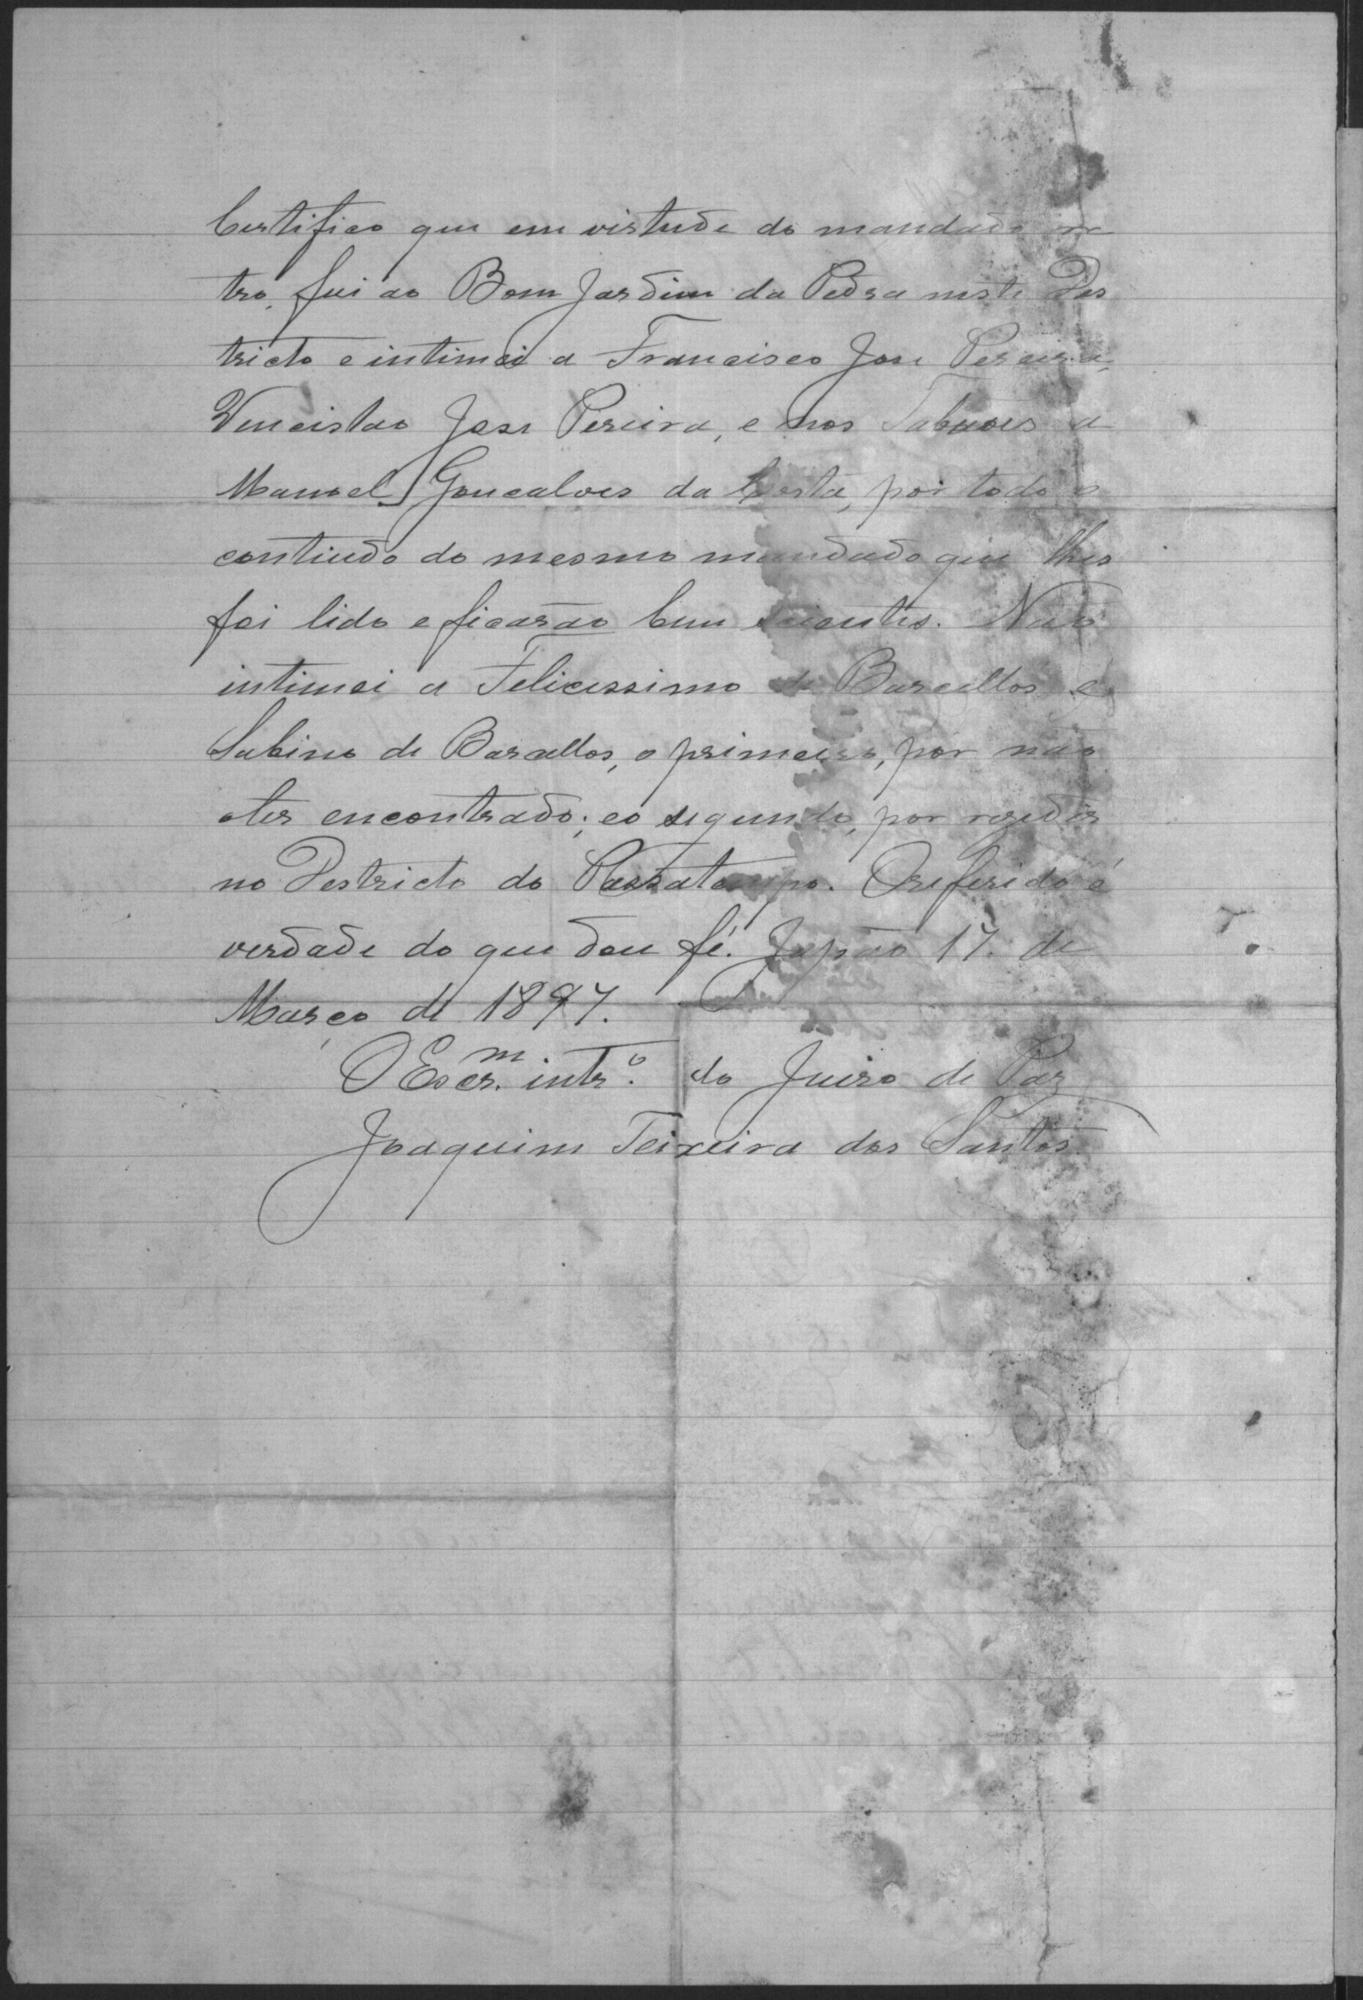 Certifico que em virtude do mandado re
tro, fui ao Bom Jardim da Pedra neste Des
tricto e intimei a Francisco Jose Pereira,
Venceislao Jose Pereira, e nos Taboões a
Manoel Gonçalves da Costa, por todo o
contiudo do mesmo mandado que lhes
foi lido e ficarão bem scientes. Não
intimei a Felicissimo de Barcellos e
Sabino de Barcellos, o primeiro, por não
oter encontrado; eo segundo, por residir
no Destricto do Passatempo. Oreferido é
verdade do que dou fé. Japão 17. de
Março de 1897.
O Escr.m intr.o do Juiso de Paz
Joaquim Teixeira dos Santos